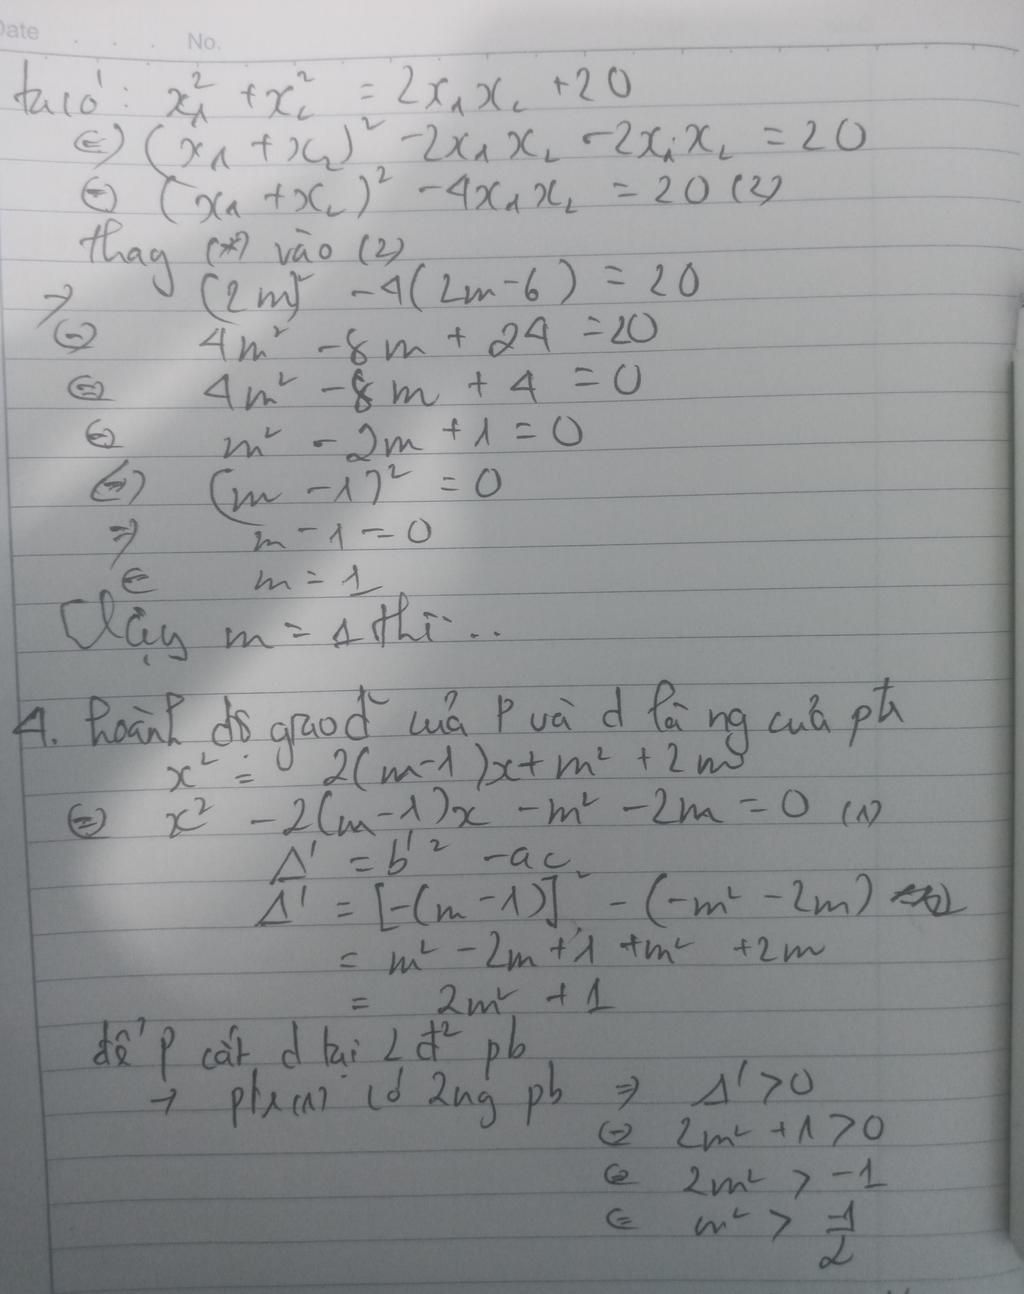 Date . . . No.
ta có: x₁² + x₂² = 2x₁x₂ + 20
⇔ (x₁ + x₂)² - 2x₁x₂ - 2x₁x₂ = 20
⇔ (x₁ + x₂)² - 4x₁x₂ = 20 (2)
thay (*) vào (2)
⇒ (2m)² - 4(2m-6) = 20
⇔ 4m² - 8m + 24 = 20
⇔ 4m² - 8m + 4 = 0
⇔ m² - 2m + 1 = 0
⇔ (m - 1)² = 0
⇒ m - 1 = 0
⇔ m = 1
Vậy m = 1 thì...
4. hoành độ giao đ² của P và d là ng của pt
x² = 2(m-1)x + m² + 2m
⇔ x² - 2(m-1)x - m² - 2m = 0 (1)
Δ' = b'² - ac
Δ' = [-(m-1)]² - (-m² - 2m)
= m² - 2m + 1 + m² + 2m
= 2m² + 1
để P cắt d tại 2 đ² pb
→ pt (1) có 2 ng pb ⇒ Δ' > 0
⇔ 2m² + 1 > 0
⇔ 2m² > -1
⇔ m² > -1/2